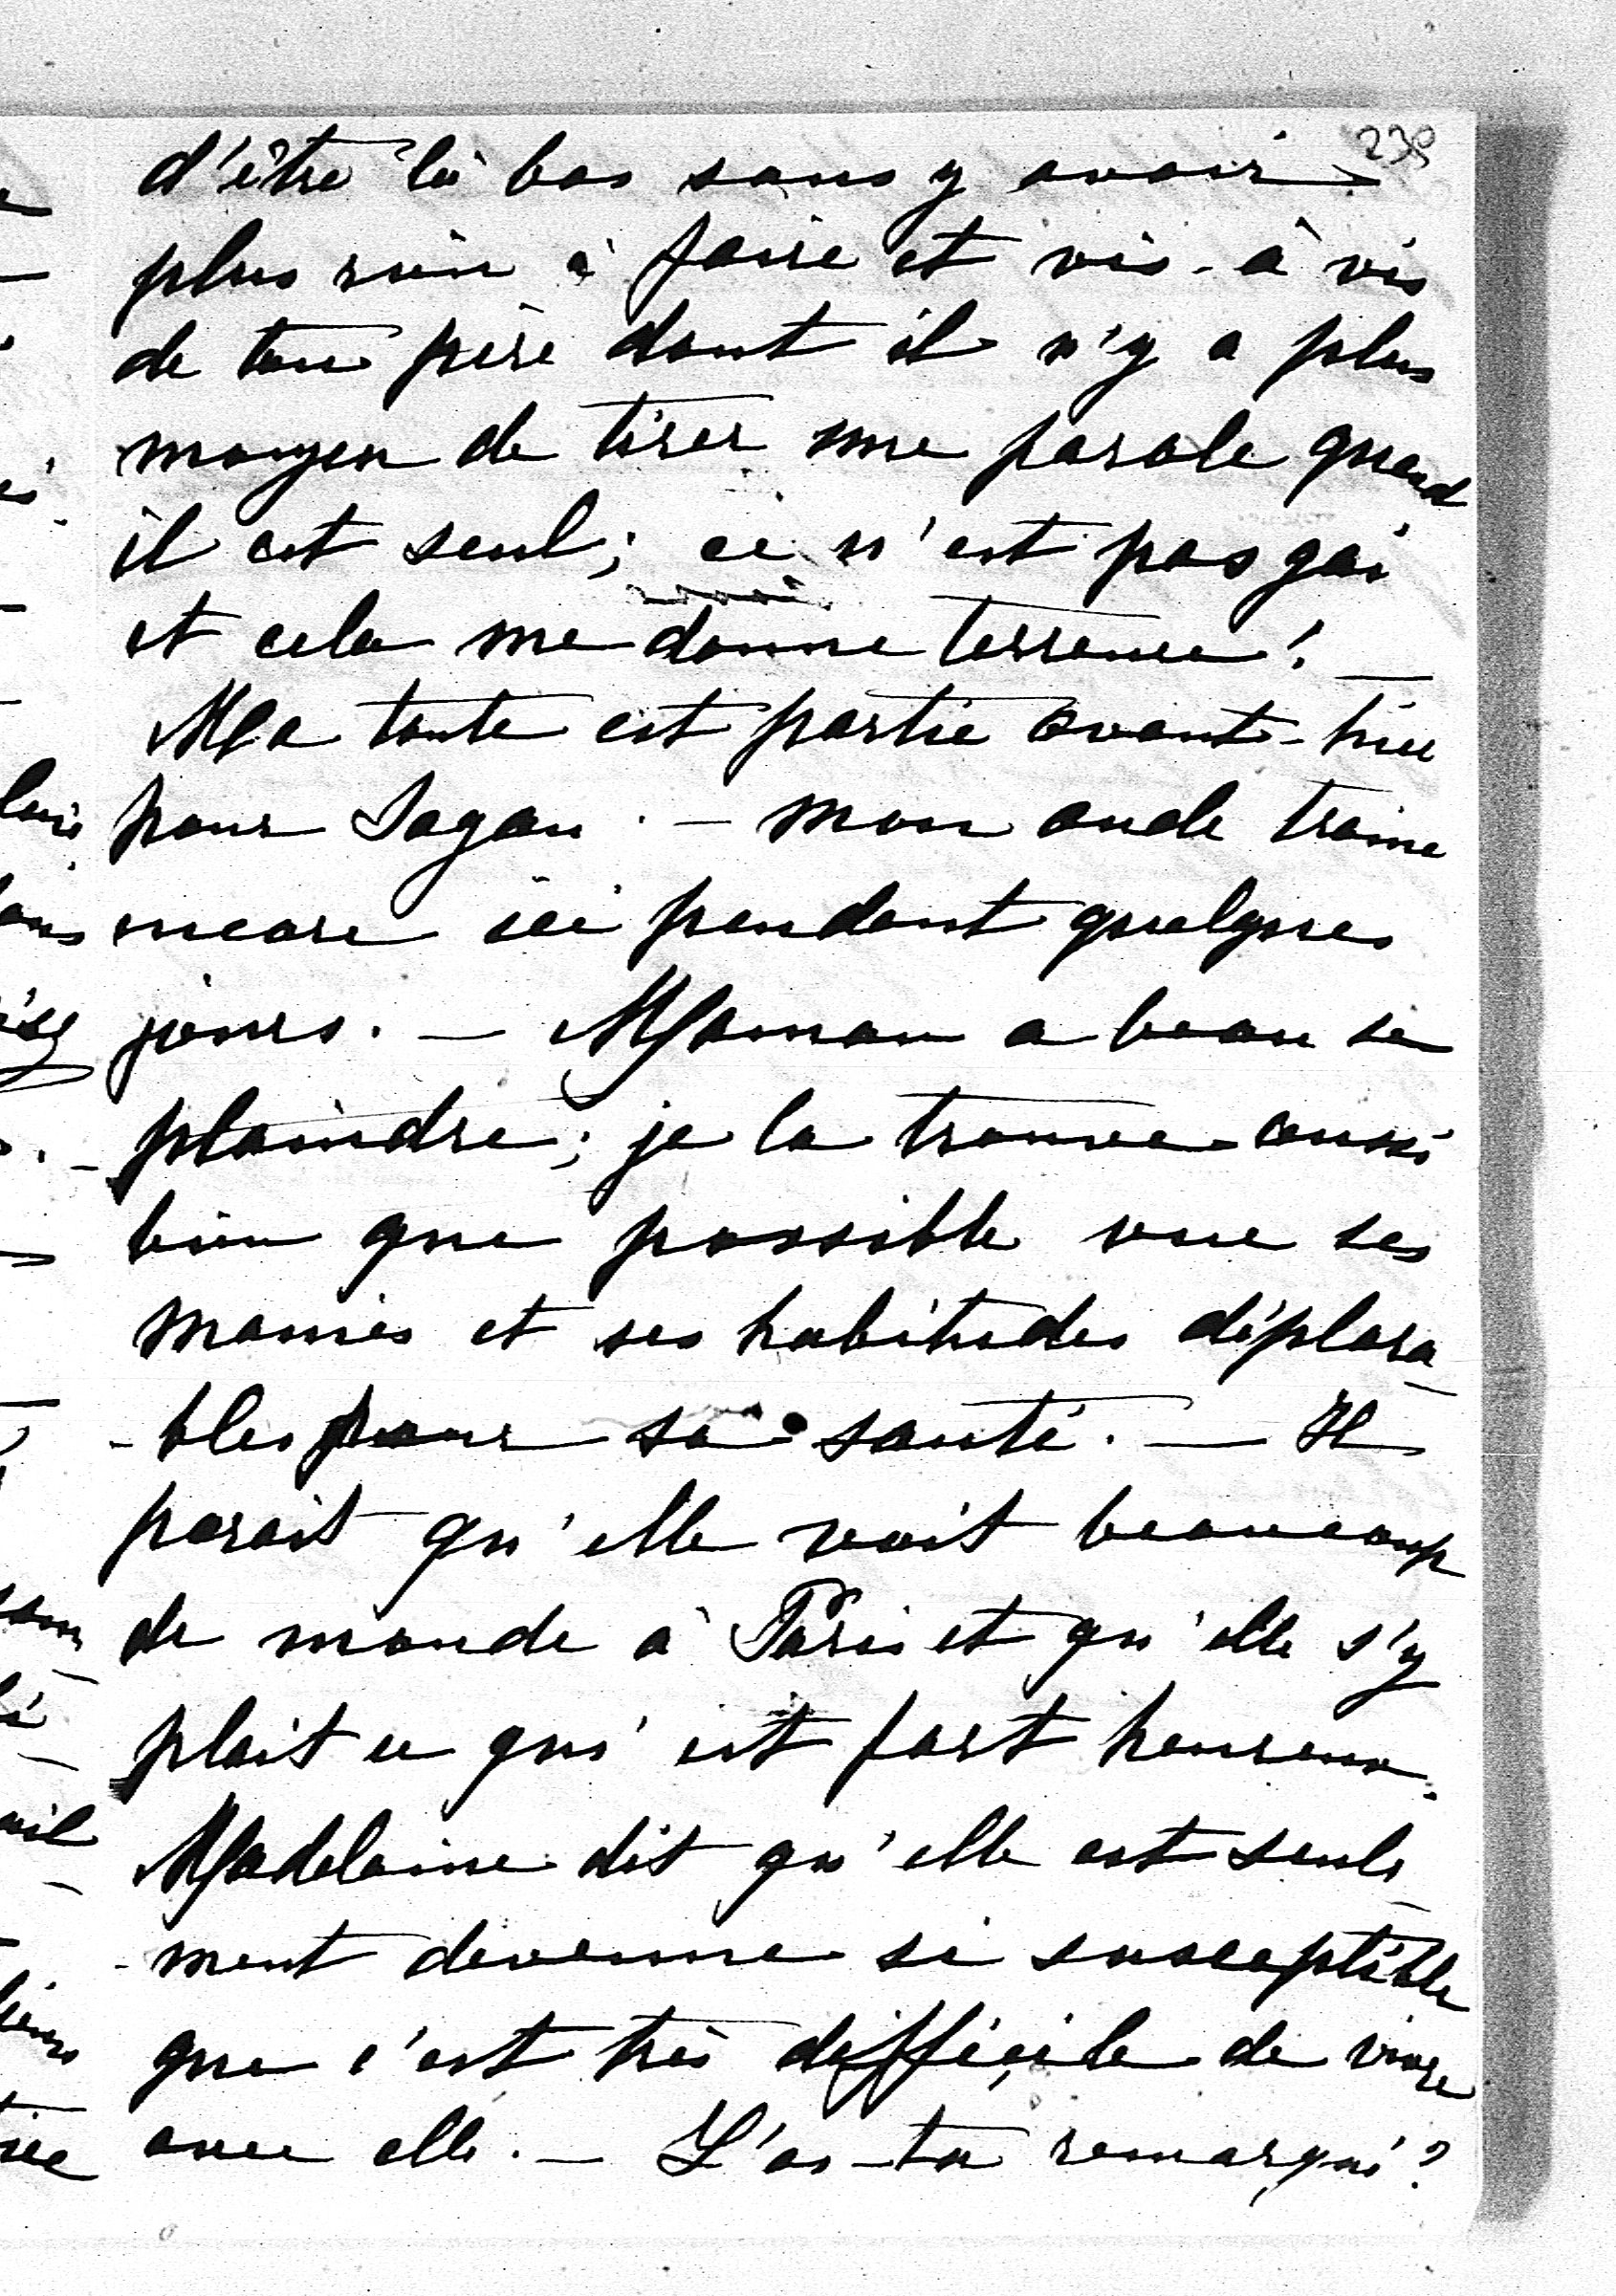 239
d'être là bas sans y avoir
plus rien à faire et vis-à vis
de ton père dont il n'y a plus
moyen de tirer une parole quand
il est seul; ce n'est pas gai
et cela me donne terreur! —
Ma tante est partie avant-hier
pour Sagan. — mon oncle traine
encore ici pendant quelques
jours. — Maman a beau se
plaindre; je la trouve aussi
bien que possible vue ses
manies et ses habitudes déplora-
-bles pour sa santé. — Il
parait qu'elle voit beaucoup
de monde à Paris et qu'elle s'y
plait ce qui est fort heureux.
Madelaine dit qu'elle est seule-
-ment devenue si susceptible
que c'est très difficile de vivre
avec elle. — L'as-tu remarqué?